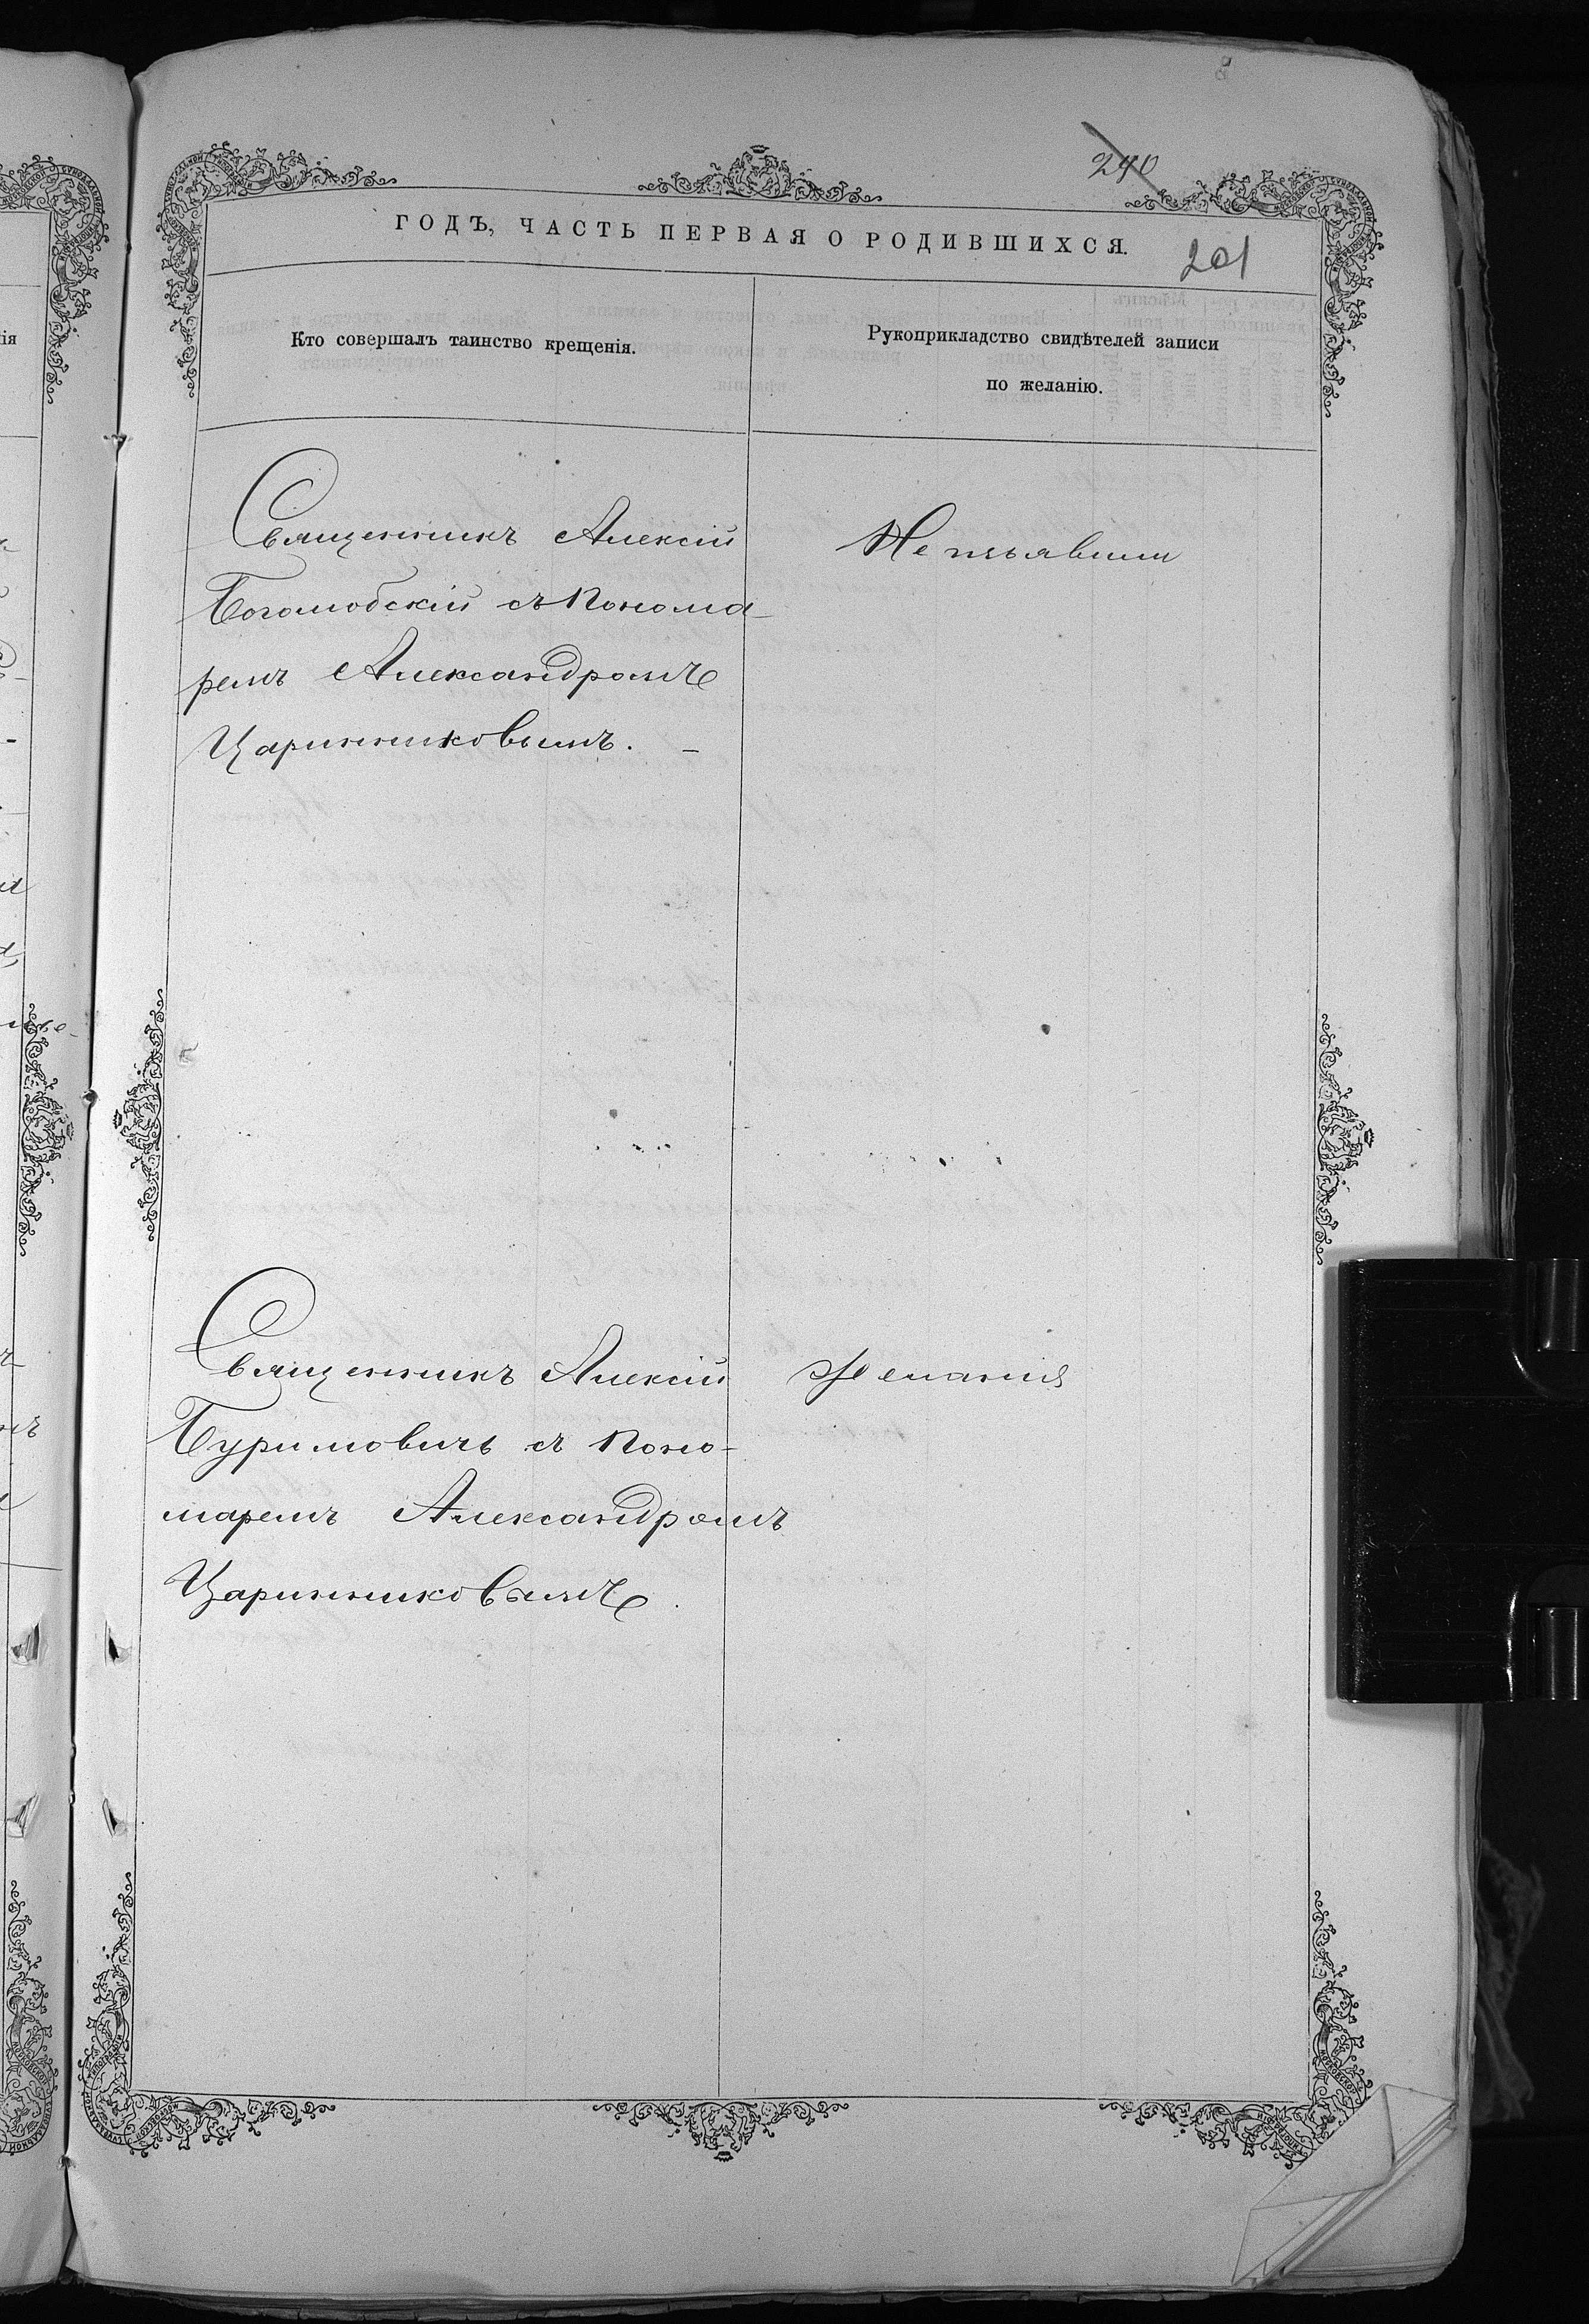 240
ГОДЪ, ЧАСТЬ ПЕРВАЯ О РОДИВШИХСЯ.
201
Кто совершалъ таинство крещенія.
Рукоприкладство свидѣтелей записи
по желанію.
Священникъ Алексій
Боголюбскій съ Понома-
ремъ Александромъ
Царинниковымъ. –
Не изъявили
Священникъ Алексій
Буримовичъ съ Поно-
маремъ Александромъ
Царинниковымъ.
желанія